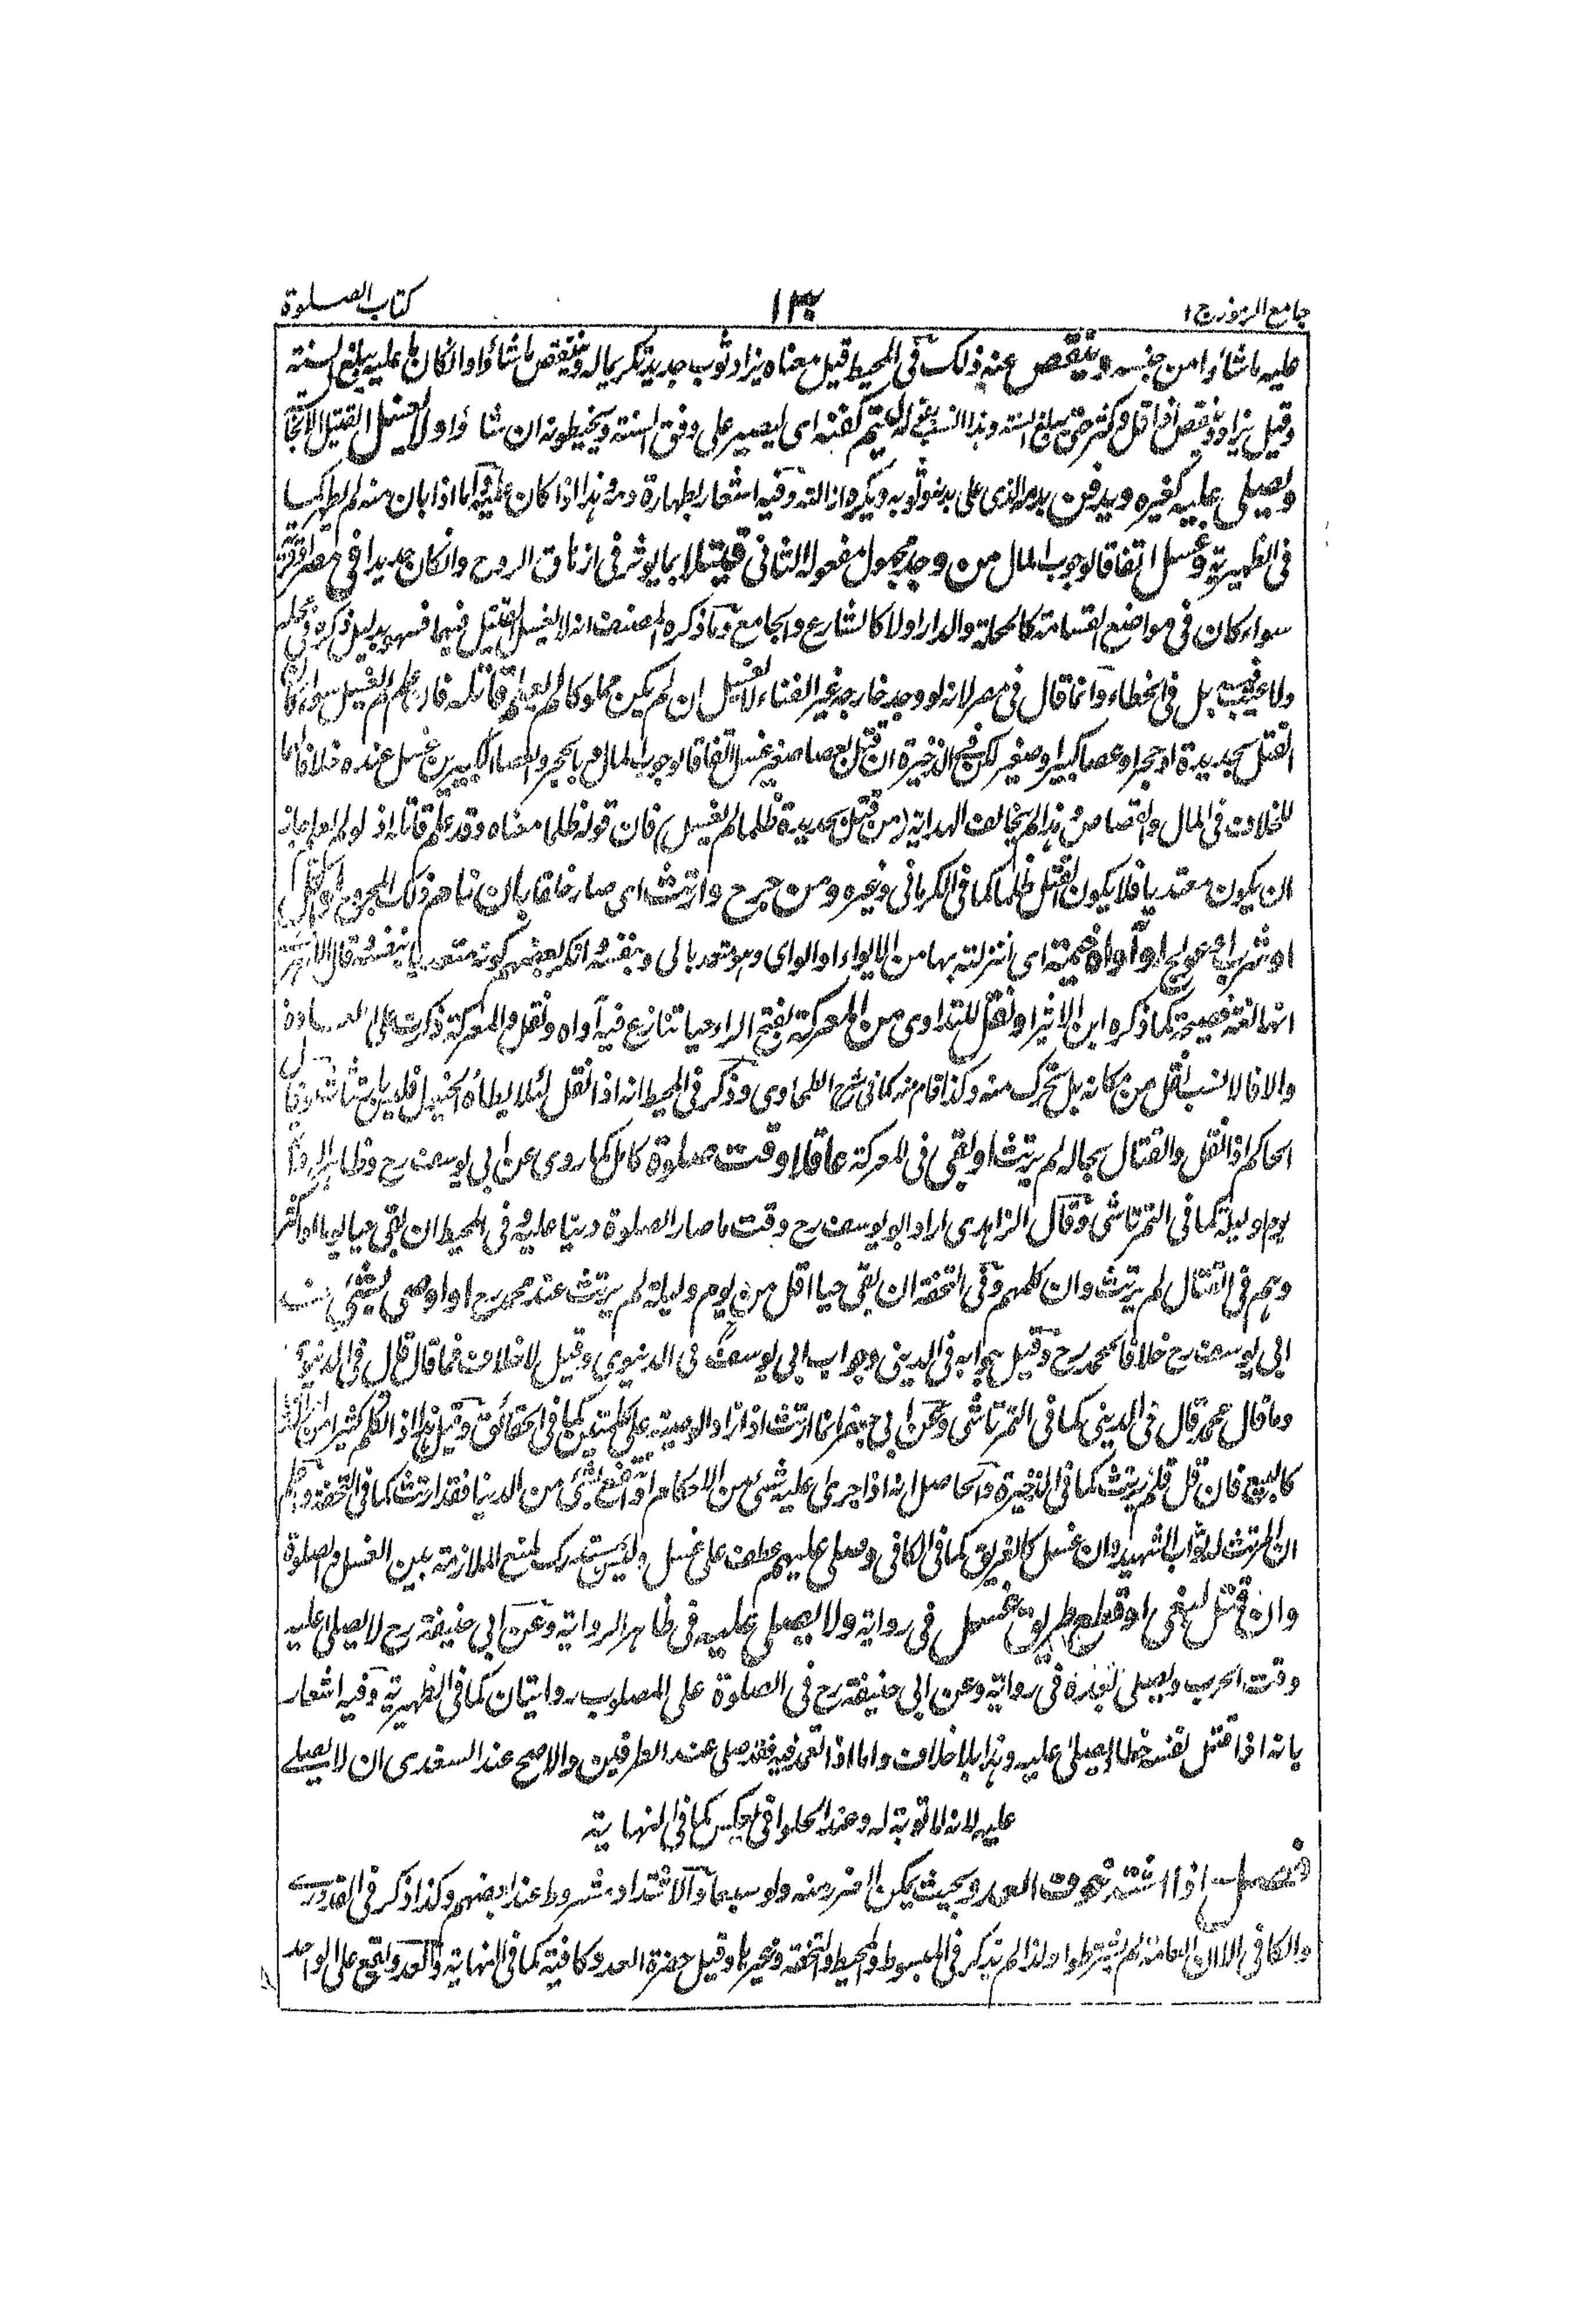 جامع الرموز ج ١
١٣٠
كتاب الصلوة
عليه ما شاؤا من جنسه وينقص عنه ذلك في المحيط قيل معناه يزاد ثوب جديد تكريما له وينقص ما شاؤا وان كان ما عليه يبلغ السنة
وقيل يزاد وينقص اذا قل وكثر حتى يبلغ السنة وهذا انسب بقوله ليتم كفنه اى ليصير على وفق السنة ويخيطونه ان شاؤا ولا يغسل القتيل
ويصلى عليه كغيره ويدفن بدمه الذى على بدنه وثوبه ويكره ازالته وفيه اشعار بطهارة دمه وهذا اذا كان عليه واما اذا بان منه لم يطهر كما
في الظهيرية وغسل اتفاقا لوجوب المال من وجد مجهول مفعوله الثانى قتيلا بما يوثر في ازهاق الروح وان كان حديدا في مصر او قرية
سواء كان في مواضع القسامة كالمحلة والدار اولا كالشارع والجامع وما ذكره المصنف انه لا يغسل القتيل فيهما فسهو بدليل ذكره في محله
ولا يجب بل في الخطاء وانما قال في مصر لانه لو وجد خارجه غير الفناء لا يغسل ان لم يكن مملوكا لم يعلم قاتله فان علم لم يغسل سواء كان
القتل بحديدة او حجر او عصا كبير او صغير لكن في الذخيرة ان قتل بعصا صغير غسل اتفاقا لوجوب المال وبالحجر والعصا الكبيرين غسل عنده خلافا لهما
للخلاف في المال والقصاص هذا لم يخالف الهداية (من قتل بحديدة ظلما لم يغسل) فان قوله ظلما معناه وقد علم قاتله اذ لو لم يعلم جاز
ان يكون معتديا فلا يكون القتل ظلما كما في الكرمانى وغيره ومن جرح وارتث اى صار خلقا بان نام ذلك المجروح او اكل
او شرب او عولج او آواه خيمة اى انزلته بها من الايواء او الواى وهو متعد بالى وبنفسه انكر بعضهم كونه متعديا بنفسه وقال الازهرى
انها لغة فصيحة كما ذكره ابن الاثير او نقل للتداوى من المعركة بفتح الراء حيا تنازع فيه آواه ونقل والمعركة ذكرت على العادة
والا فالانسب نقل من مكانه بل تحرك منه وكذا قام منه كما في شرح الطحاوى وذكر في المحيط انه اذا نقل لئلا يطأه الخيول فليس بارتثاث وقال
الحاكم اذا نقل والقتال بحاله لم يرتث او بقى في المعركة عاقلا وقت صلوة كامل كما روى عن ابى يوسف رح وظاهر الرواية
يوم وليلة كما في التمرتاشى وقال الزاهدى اراد ابو يوسف رح وقت ما صار الصلوة دينا عليه وفي المحيط ان بقى حيا يوما او اكثر
وهم في القتال لم يرتث وان كلمهم وفي التحفة ان بقى حيا اقل من يوم وليلة لم يرتث عند محمد رح او اوصى بشئ عند
ابى يوسف رح خلافا لمحمد رح وقيل جوابه في الدينى وجواب ابى يوسف في الدنيوى وقيل لا خلاف فما قال قال في الدنيوى
وما قال محمد قال في الدينى كما في التمرتاشى وعن ابى جعفر انما ارتث اذا زاد الوصية على كلمتين كما في الحقائق وقيل هذا اذا تكلم كثيرا من
كالبيع فان قل فلم يرتث كما في الذخيرة والحاصل انه اذا جرى عليه شئ من الاحكام او انتفع بشئ من الدنيا فقد ارتث كما في التحفة واعلم
ان المرتث له ثواب الشهيد وان غسل كالغريق كما في الكافى وصلى عليهم عطف على غسل وليس بمستدرك لمنع الملازمة بين الغسل والصلوة
وان قتل لبغى او قطع طريق غسل في رواية ولا يصلى عليه في ظاهر الرواية وعن ابى حنيفة رح لا يصلى عليه
وقت الحرب ويصلى بعده في رواية وعن ابى حنيفة رح في الصلوة على المصلوب روايتان كما في الظهيرية وفيه اشعار
بانه اذا قتل نفسه خطأ يصلى عليه وهذا بلا خلاف واما اذا تعمد فيه فقد صلى عند الطرفين والاصح عند السغدى ان لا يصلى
عليه لانه لا توبة له وعند الحلوانى بالعكس كما في النهاية
فصل اذا اشتد خوف العدو بحيث يمكن الضرر منه ولو سبعا والاشتداد مشروط عند بعضهم وكذا ذكر في القدورى
والكافى الا ان العامة لم يشترطوا ولذا لم يذكر في المبسوط والمحيط والتحفة وغيرها وقيل حضرة العدو كافية كما في النهاية والعدو يقع على الواحد